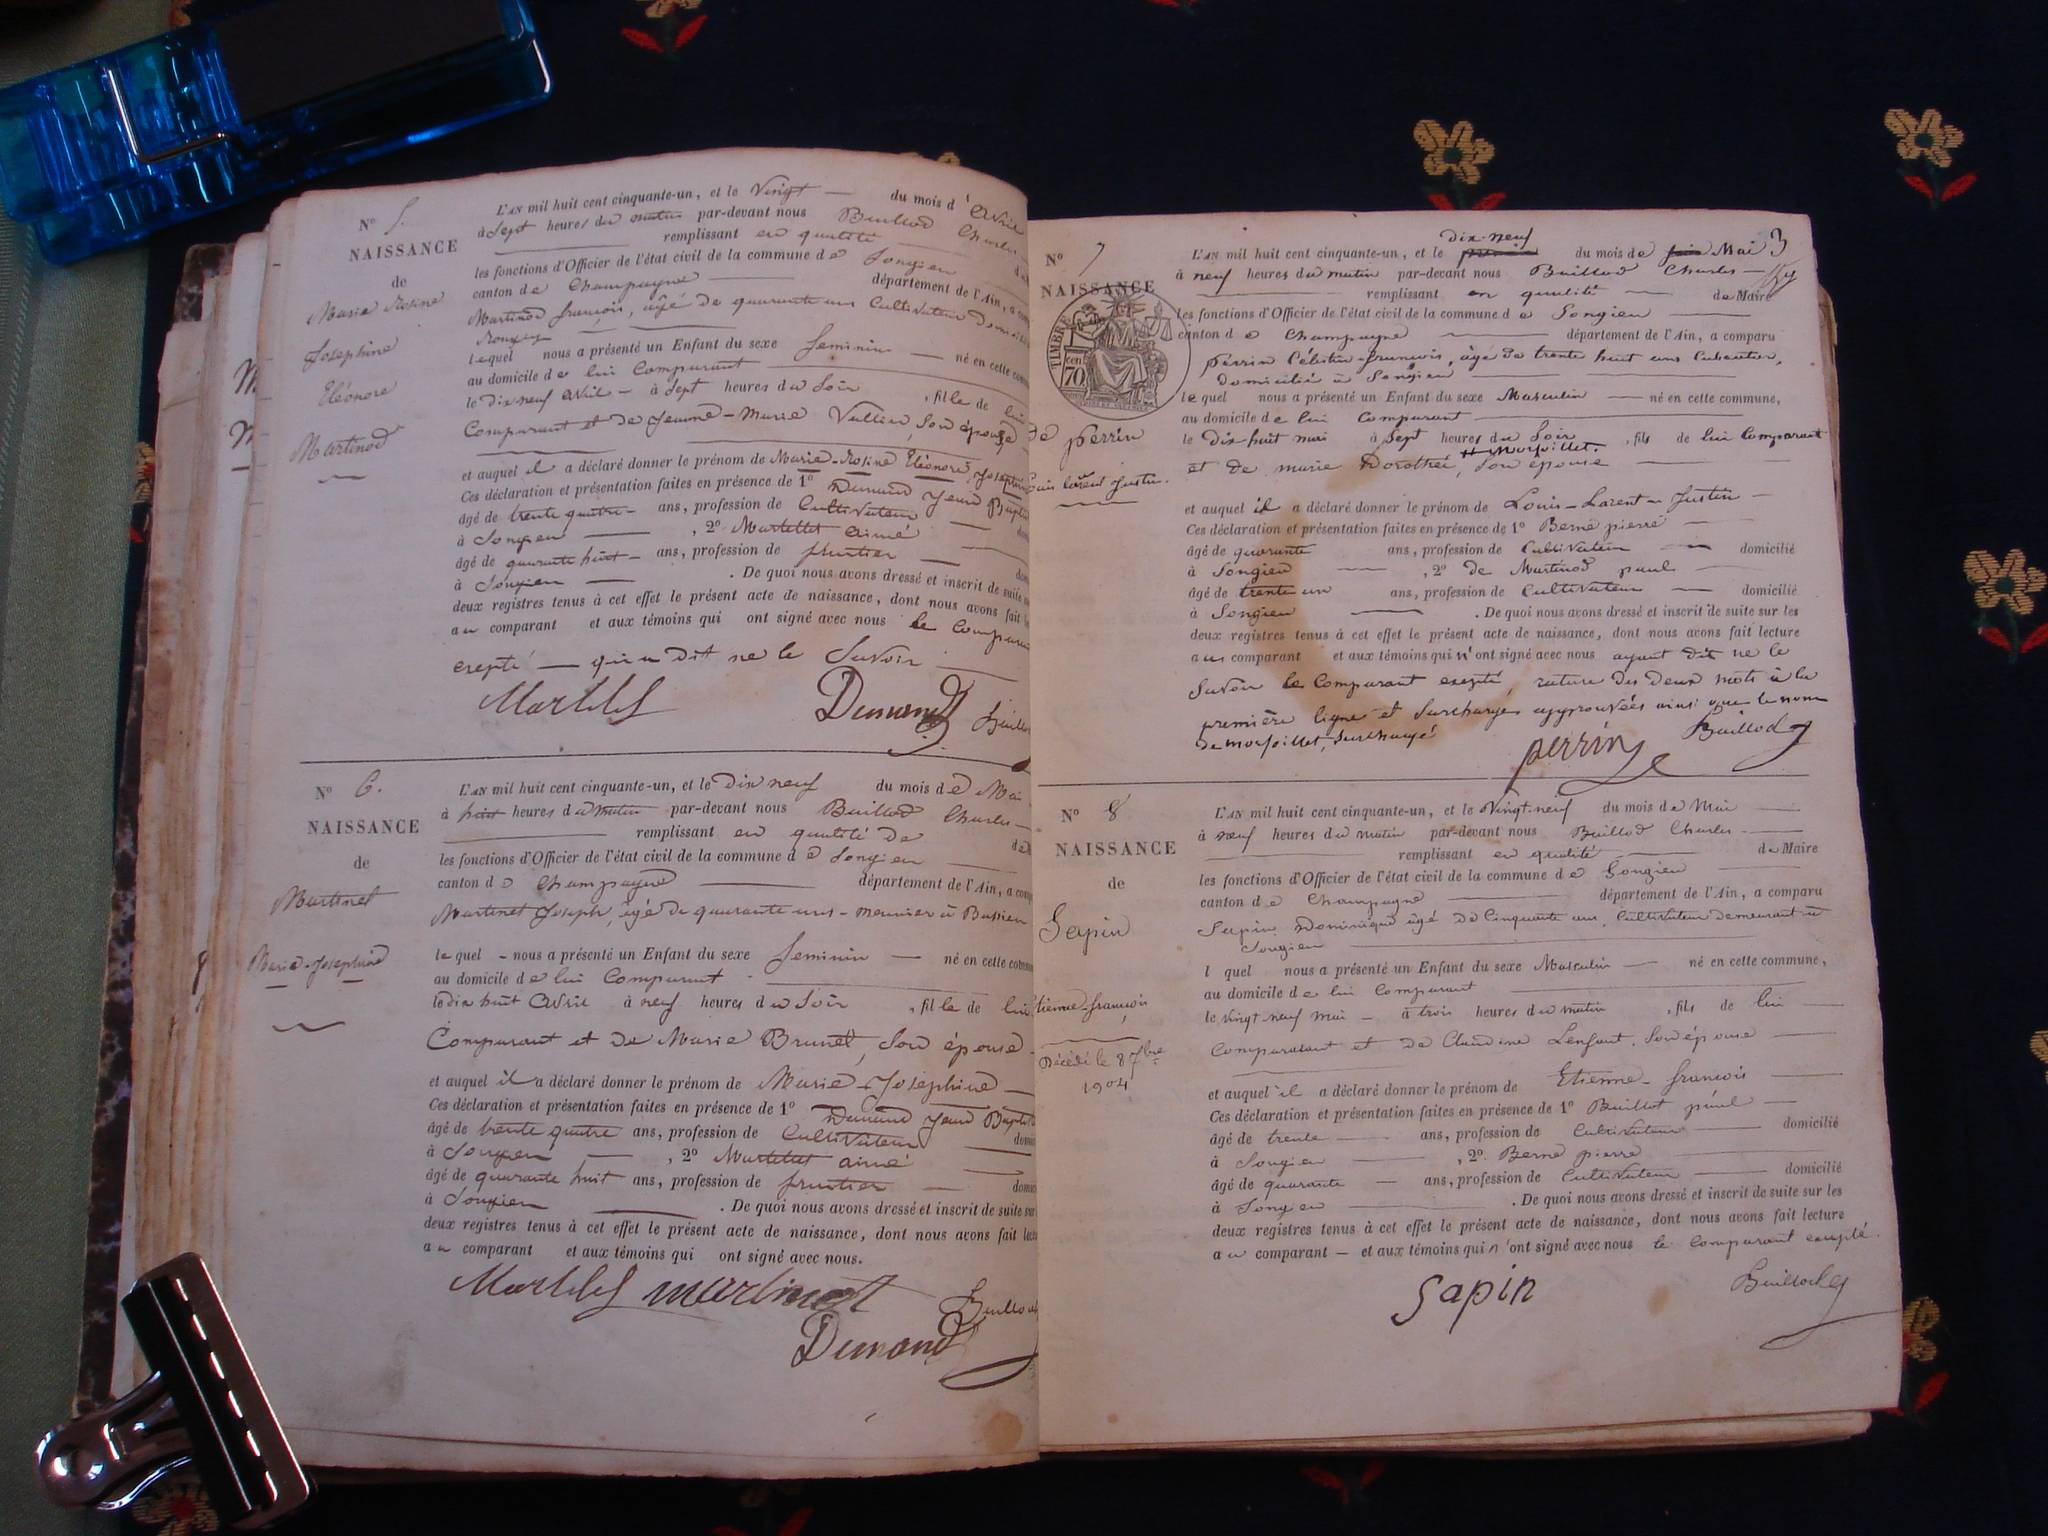 N° 5.
NAISSANCE
de
Marie Rosine
Josephine
Eléonore
Martinod
L'AN mil huit cent cinquante-un, et le Vingt du mois d'Avril
à Sept heures du matin par-devant nous Buillod Charles
remplissant en qualité
les fonctions d'Officier de l'état civil de la commune de Songieu
canton de Champagne département de l'Ain, a
Martinod françois, âgé de quarante ans Cultivateur
lequel nous a présenté un Enfant du sexe feminin né en cette
au domicile de lui Comparant
le dix neuf avril à Sept heures du Soir, fille de lui
Comparant et de Jeanne-Marie Vullien, Son épouse
et auquel il a déclaré donner le prénom de Marie-Rosine Eléonore Josephine
Ces déclaration et présentation faites en présence de 1° Dumand Jean
âgé de trente quatre ans, profession de Cultivateur
à Songieu, 2° Martellet aimé
âgé de quarante huit ans, profession de fruitier
à Songieu. De quoi nous avons dressé et inscrit de suite
deux registres tenus à cet effet le présent acte de naissance, dont nous avons fait
au comparant et aux témoins qui ont signé avec nous le
excepté qui a dit ne le Savoir
Martelet Dumand
N° 6.
NAISSANCE
de
Martinet
Marie-Josephine
L'AN mil huit cent cinquante-un, et le Dix neuf du mois de Mai
à huit heures du matin par-devant nous Buillod Charles
remplissant en qualité de
les fonctions d'Officier de l'état civil de la commune de Songieu
canton de Champagne département de l'Ain, a
Martinet Joseph, âgé de quarante ans - meunier à Bassieu
lequel - nous a présenté un Enfant du sexe feminin né en cette
au domicile de lui Comparant
le dix huit Avril à neuf heures du Soir, fille de lui
Comparant et de Marie Brunet, Son épouse
et auquel il a déclaré donner le prénom de Marie-Josephine
Ces déclaration et présentation faites en présence de 1° Dumand Jean
âgé de trente quatre ans, profession de Cultivateur
à Songieu, 2° Martellet aimé
âgé de quarante huit ans, profession de fruitier
à Songieu. De quoi nous avons dressé et inscrit de suite sur
deux registres tenus à cet effet le présent acte de naissance, dont nous avons fait
au comparant et aux témoins qui ont signé avec nous.
Martelet martinet
Dumand
3
N° 7
NAISSANCE
TIMBRE
70
de perrin
Louis larent Justin.
dix-neuf
L'AN mil huit cent cinquante-un, et le du mois de juin Mai
à neuf heures du matin par-devant nous Buillod Charles
remplissant en qualité de Maire
les fonctions d'Officier de l'état civil de la commune de Songieu
canton de Champagne département de l'Ain, a comparu
perrin Célestin-françois, âgé de trente huit ans Cabaretier,
domicilié à Songieu
lequel nous a présenté un Enfant du sexe Masculin né en cette commune,
au domicile de lui Comparant
le dix huit mai à Sept heures du Soir, fils de lui Comparant
et de marie Dorothée Morfoillet, Son épouse
et auquel il a déclaré donner le prénom de Louis-Larent-Justin
Ces déclaration et présentation faites en présence de 1° Berne pierre
âgé de quarante ans, profession de Cultivateur domicilié
à Songieu, 2° de Martinod paul
âgé de trente un ans, profession de Cultivateur domicilié
à Songieu. De quoi nous avons dressé et inscrit de suite sur les
deux registres tenus à cet effet le présent acte de naissance, dont nous avons fait lecture
aux comparant et aux témoins qui n'ont signé avec nous ayant dit ne le
Savoir le Comparant excepté, rature des deux mots à la
première ligne et Surcharges approuvées ainsi que le nom
de morfoillet, Surchargé
perrin Buillod
N° 8
NAISSANCE
de
Sapin
Etienne-françois
Décédé le 8 7bre
1904
L'AN mil huit cent cinquante-un, et le Vingt-neuf du mois de Mai
à neuf heures du matin par-devant nous Buillod Charles
remplissant en qualité de Maire
les fonctions d'Officier de l'état civil de la commune de Songieu
canton de Champagne département de l'Ain, a comparu
Sapin Dominique âgé de Cinquante ans, Cultivateur demeurant à
Songieu
l quel nous a présenté un Enfant du sexe Masculin né en cette commune,
au domicile de lui Comparant
le vingt neuf mai - à trois heures du matin, fils de lui
Comparatant et de Claudine Lenfant, Son épouse
et auquel il a déclaré donner le prénom de Etienne-françois
Ces déclaration et présentation faites en présence de 1° Buillot paul
âgé de trente ans, profession de Cultivateur domicilié
à Songieu, 2° Berne pierre
âgé de quarante ans, profession de Cultivateur domicilié
à Songieu. De quoi nous avons dressé et inscrit de suite sur les
deux registres tenus à cet effet le présent acte de naissance, dont nous avons fait lecture
au comparant - et aux témoins qui n'ont signé avec nous le Comparant excepté.
Sapin Buillod